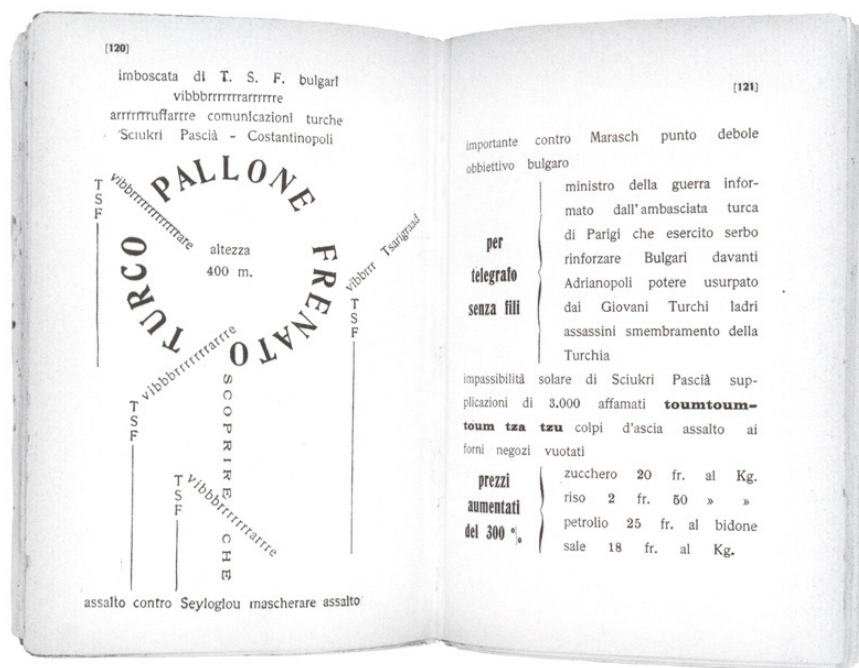 [120]
imboscata di T. S. F. bulgari
vibbbrrrrrrrarrrrrre
arrrrrrruffarrre comunicazioni turche
Sciukri Pascià - Costantinopoli
TSF
vibbrrrrrrrrrrrrrrare
TURCO PALLONE FRENATO
altezza
400 m.
vibbrrr Tsarigraad
TSF
vibbbrrrrrrrarrre
TSF
SCOPRIRE CHE
TSF
vibbbrrrrrrrarrre
assalto contro Seyloglou mascherare assalto
[121]
importante contro Marasch punto debole
obbiettivo bulgaro
per
telegrafo
senza fili
ministro della guerra infor-
mato dall'ambasciata turca
di Parigi che esercito serbo
rinforzare Bulgari davanti
Adrianopoli potere usurpato
dai Giovani Turchi ladri
assassini smembramento della
Turchia
impassibilità solare di Sciukri Pascià sup-
plicazioni di 3.000 affamati toumtoum-
toum tza tzu colpi d'ascia assalto ai
forni negozi vuotati
prezzi
aumentati
del 300 %
zucchero 20 fr. al Kg.
riso 2 fr. 50 » »
petrolio 25 fr. al bidone
sale 18 fr. al Kg.